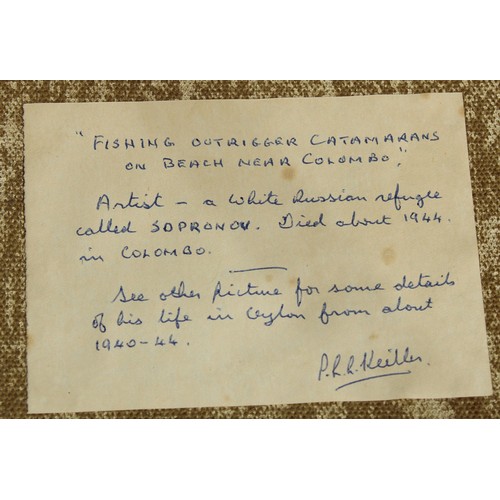 "FISHING OUTRIGGER CATAMARANS
ON BEACH NEAR COLOMBO."
Artist - a White Russian refugee
called SOPRONOV. Died about 1944.
in COLOMBO.
See other Picture for some details
of his life in Ceylon from about
1940-44.
P.L.L.Keiller.